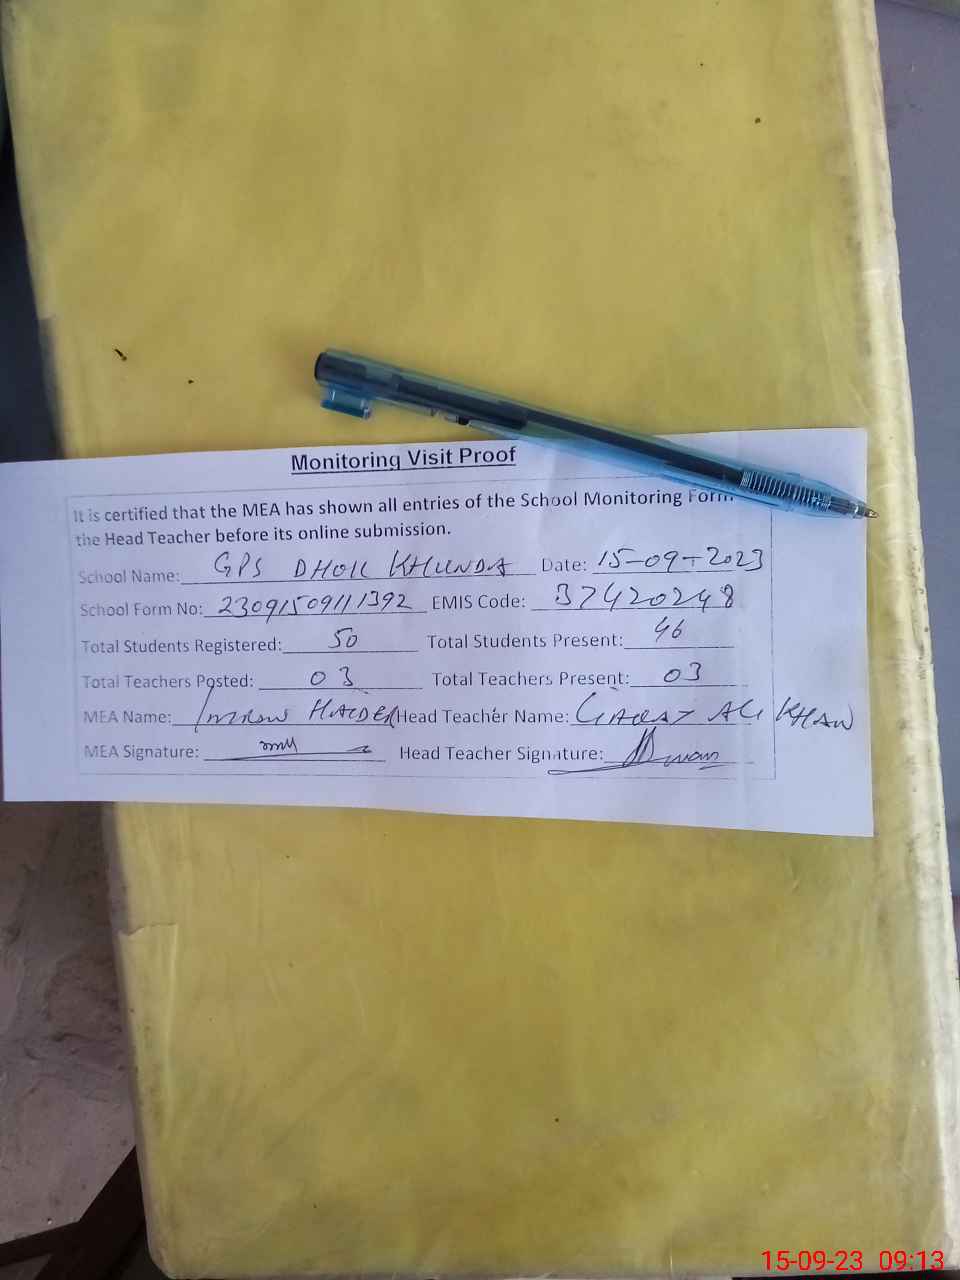 Monitoring Visit Proof
It is certified that the MEA has shown all entries of the School Monitoring Form
the Head Teacher before its online submission.
School Name: GPS DHOK KHUNDA Date: 15-09-2023
School Form No: 23091509111392 EMIS Code: 37420248
Total Students Registered: 50 Total Students Present: 46
Total Teachers Posted: 03 Total Teachers Present: 03
MEA Name: IMRAN HAIDER Head Teacher Name: ALI KHAN
MEA Signature: Head Teacher Signature:
15-09-23 09:13